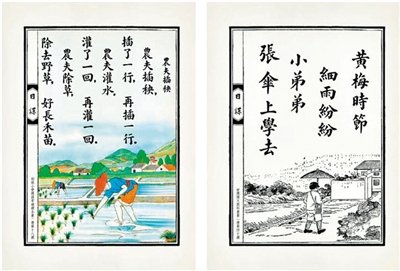 農夫插秧
農夫插秧,
插了一行,再插一行.
農夫灌水,
灌了一回,再灌一回.
農夫除草,
除去野草,好長禾苗.
日課
黃梅時節
細雨紛紛
小弟弟
張傘上學去
日課